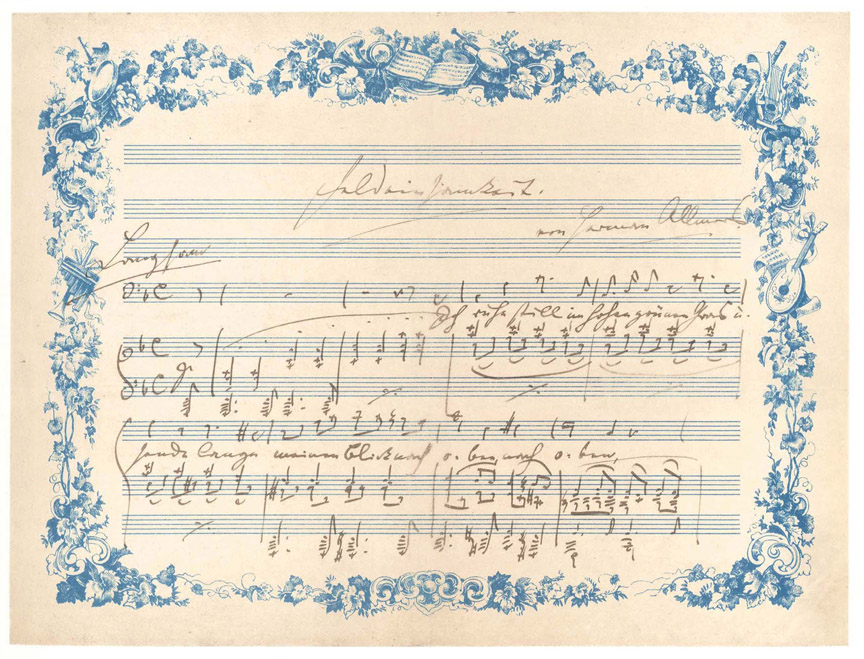 Feldeinsamkeit.
von Herman Allmers
Langsam
Ich ruhe still im hohen grünen Gras u.
sende lange meinen Blick nach o- ben, nach o- ben,